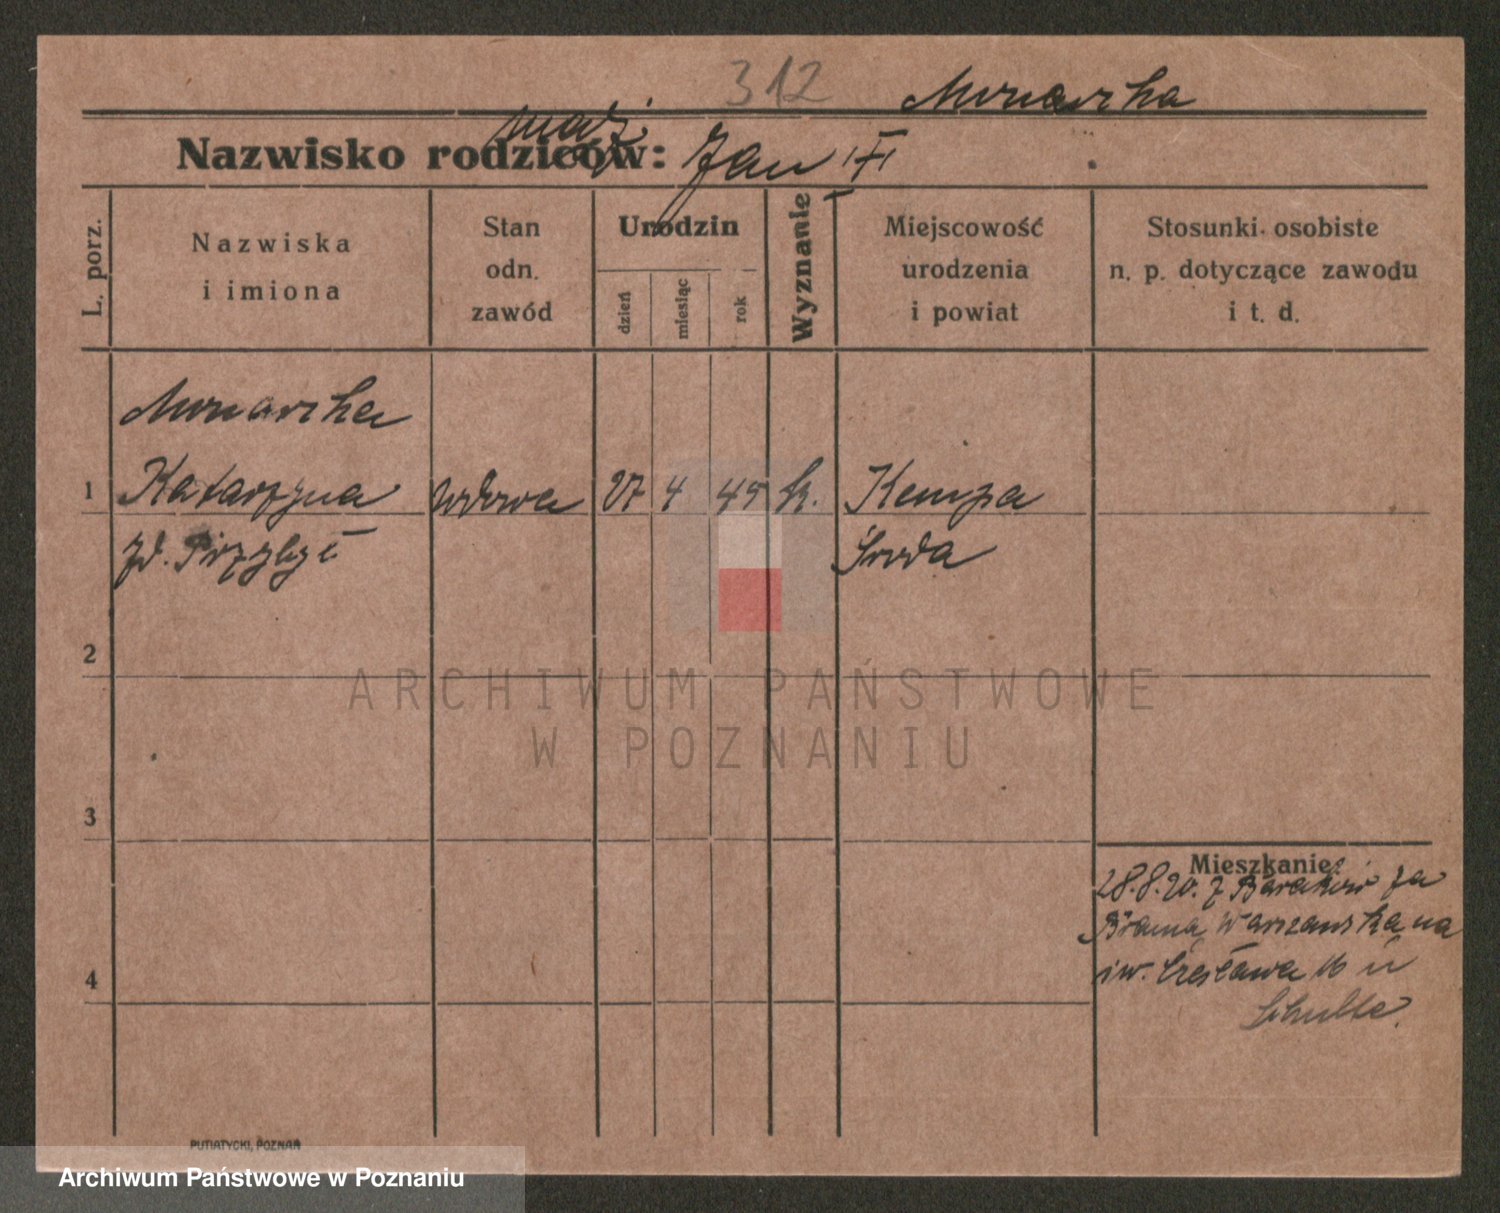 312 Monarcha
mąż
Nazwisko rodziców: Jan †
L. porz.
Nazwiska
i imiona
Stan
odn.
zawód
Urodzin
dzień
miesiąc
rok
Wyznanie
Miejscowość
urodzenia
i powiat
Stosunki osobiste
n. p. dotyczące zawodu
i t. d.
Monarcha
1 Katarzyna wdowa 27 4 45 k. Kempa
zd. Przybył Środa
2
ARCHIWUM PAŃSTWOWE
W POZNANIU
3
Mieszkanie:
28.8.20. z Baraków za
Bramą Warszawską na
św. Czesława 16 u
4
Schulte.
PUTIATYCKI, POZNAŃ
Archiwum Państwowe w Poznaniu